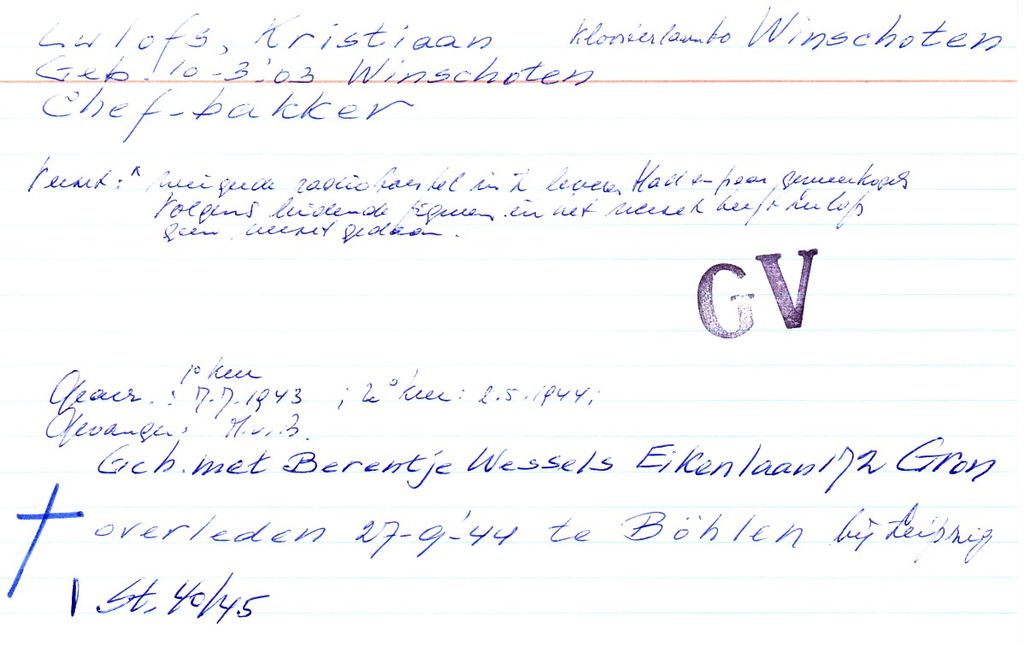 Lulofs, Kristiaan Winschoten
Geb. 10-3-'03 Winschoten
Chef-bakker
Verzet: weigerde radiotoestel in te leveren Had een paar
Volgens leidende figuren in het verzet heeft Lulofs
geen verzet gedaan.
GV
1e keer
Gearr.: 7.7.1943 ; 2e keer: 2.5.1944;
Gevangen:
Geh. met Berentje Wessels Eikenlaan 172 Gron
overleden 27-9-'44 te Böhlen bij Leipzig
St. 40/45